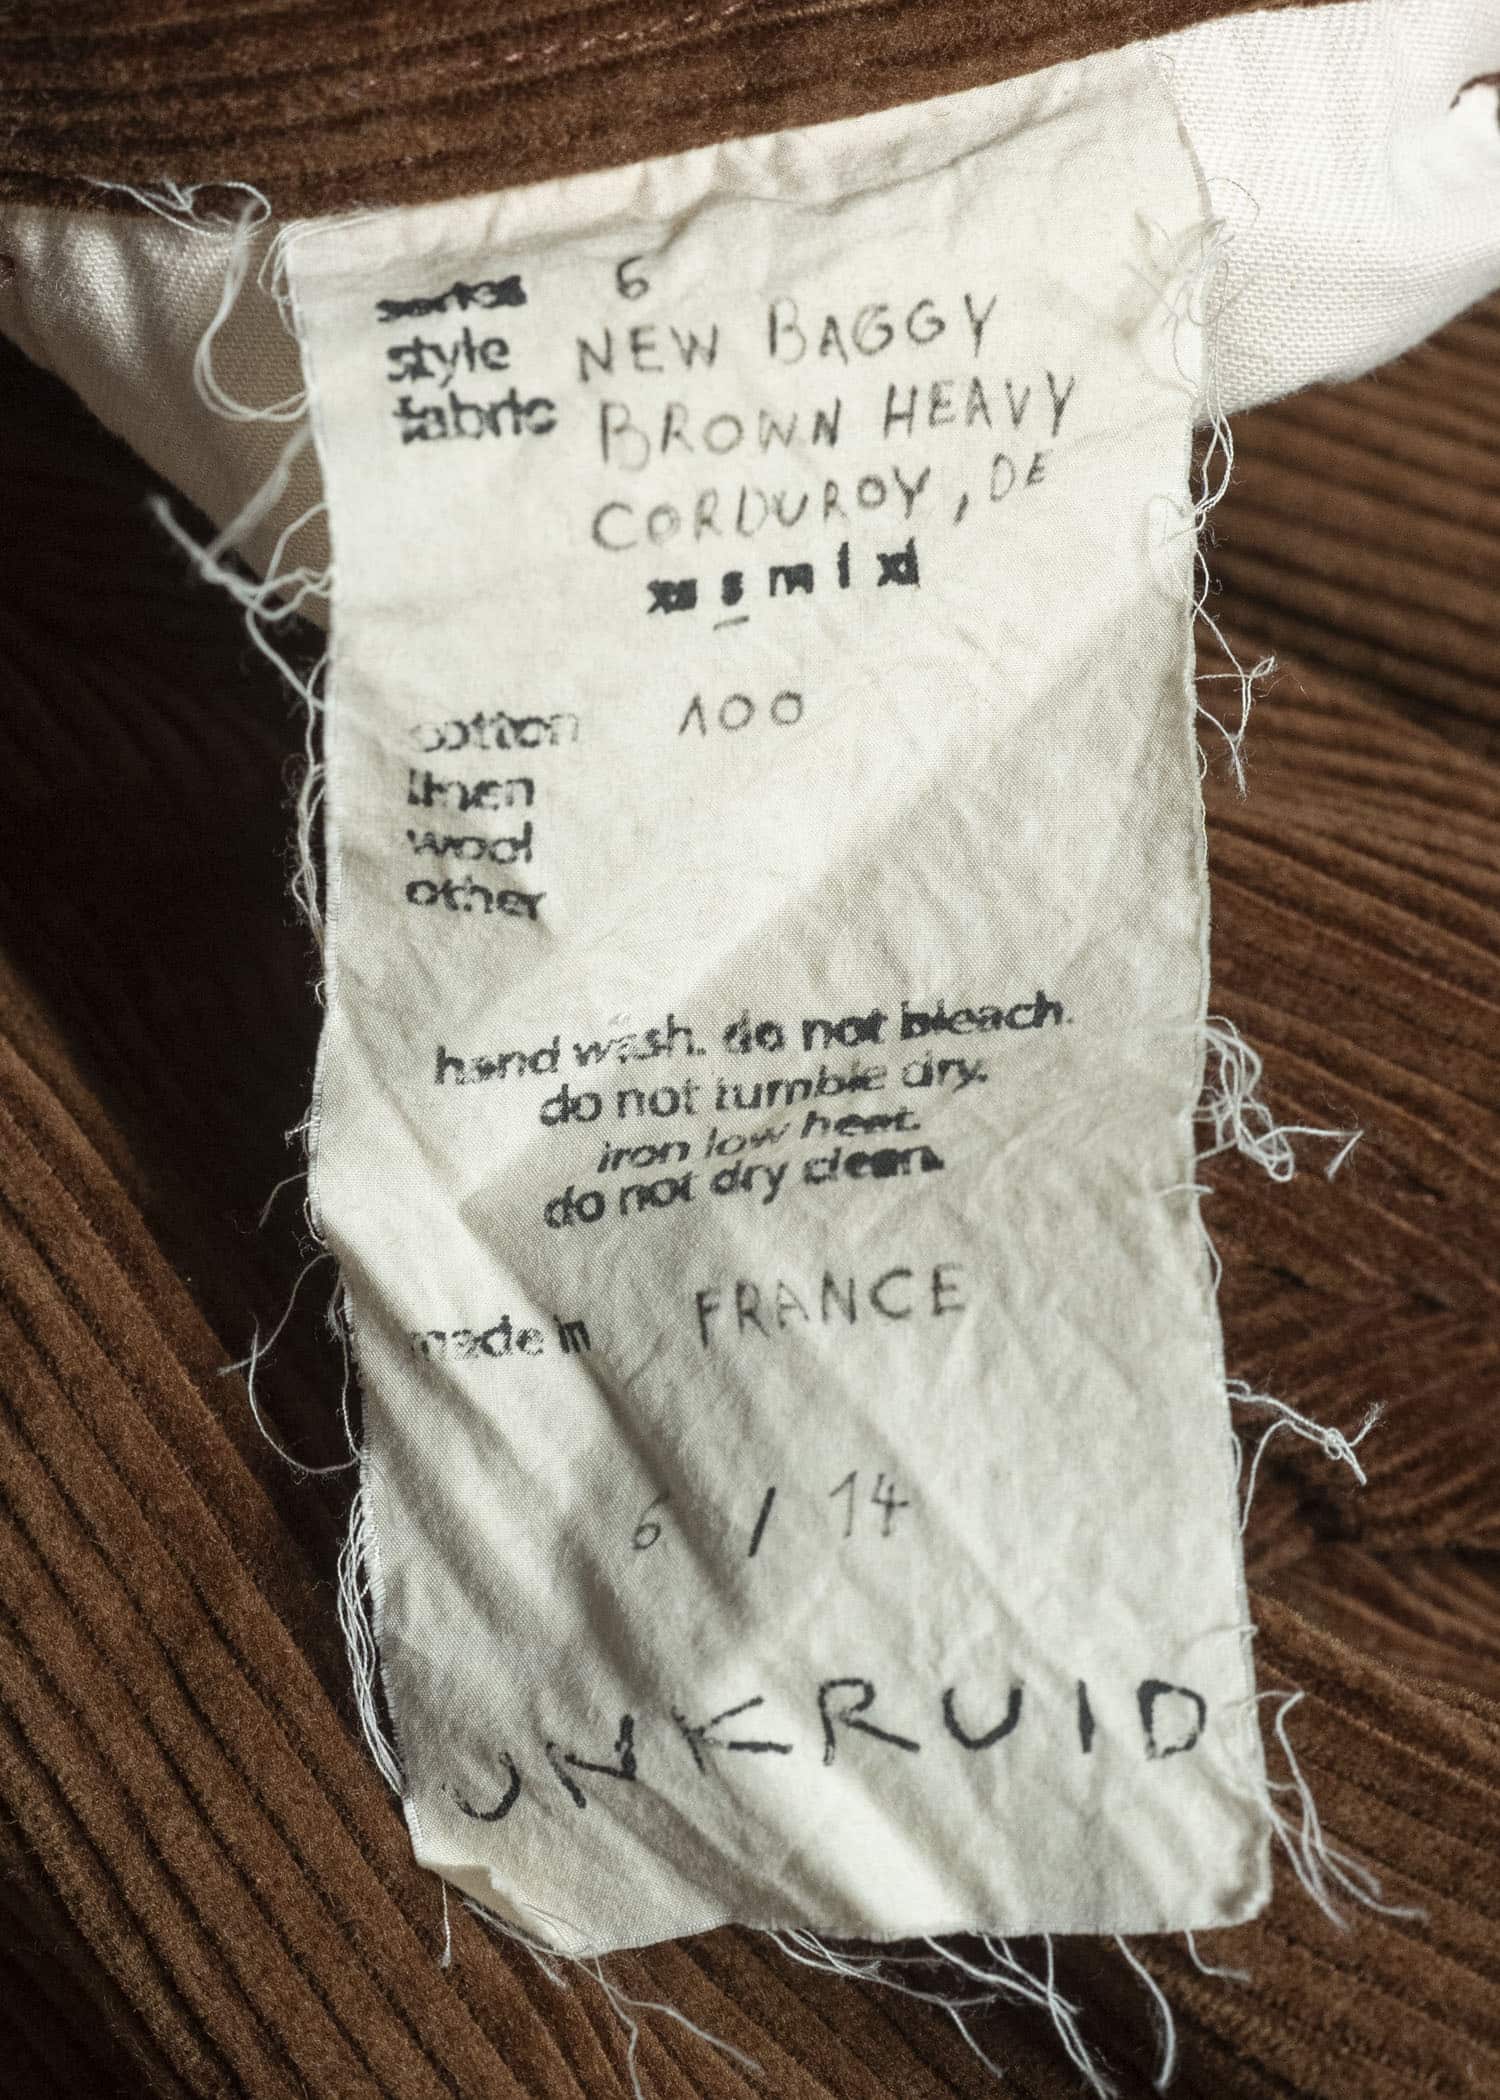 series 6
style NEW BAGGY
fabric BROWN HEAVY
CORDUROY, DE
xs s m l xl
cotton 100
linen
wool
other
hand wash. do not bleach.
do not tumble dry.
iron low heat.
do not dry clean.
made in FRANCE
6 / 14
UNKRUID